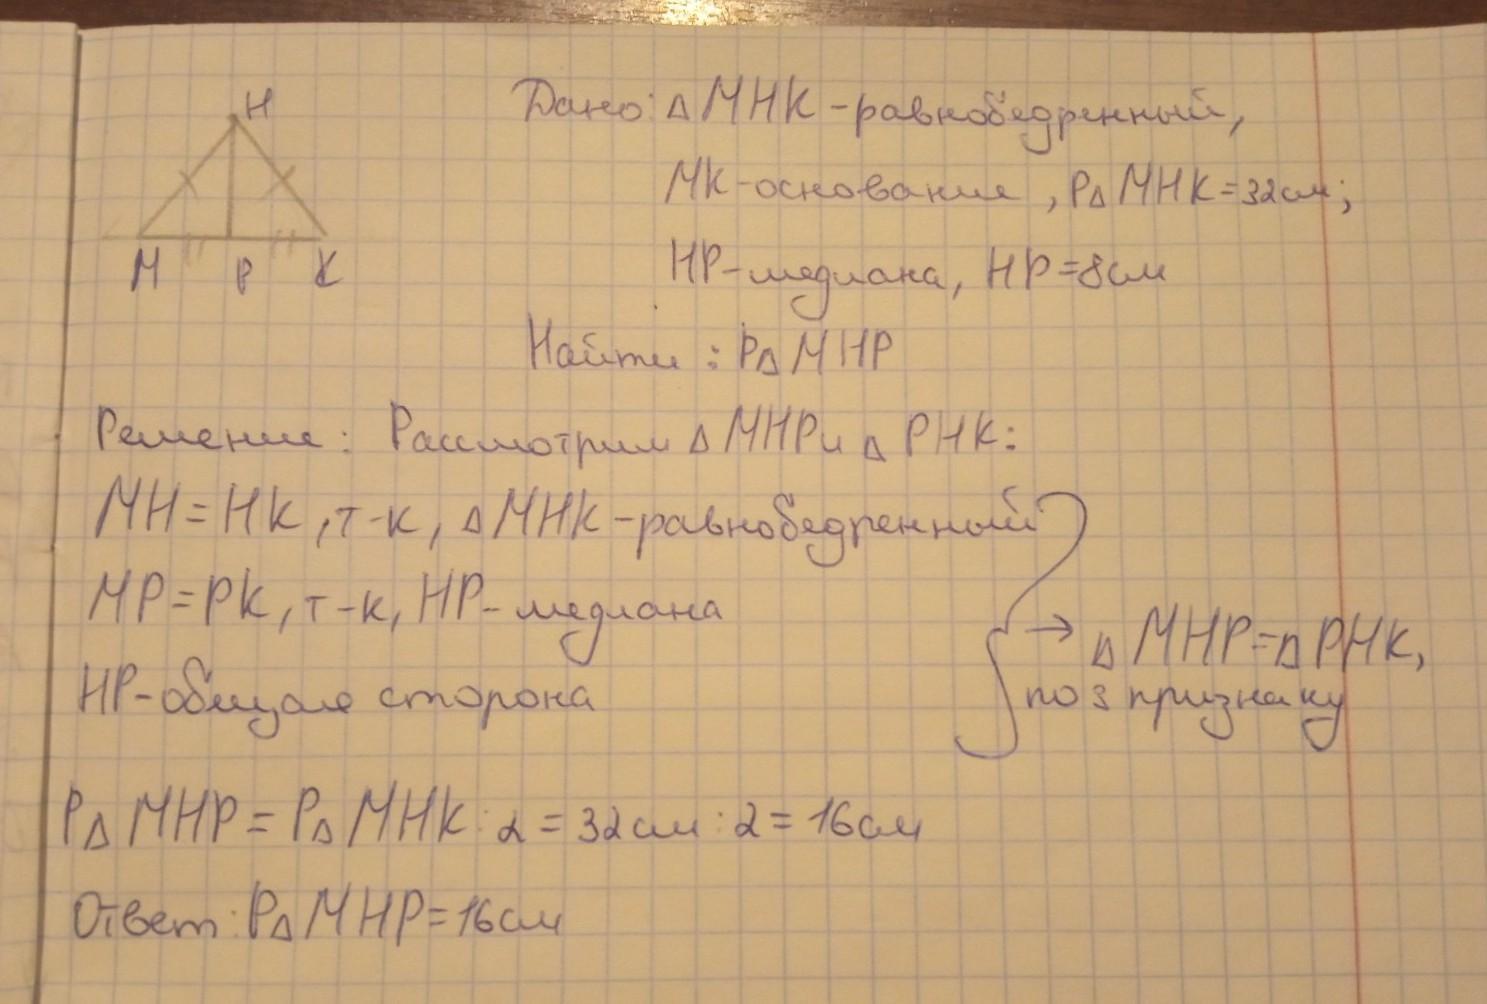 H
M P K
Дано: △MHK-равнобедренный,
MK-основание, P△MHK=32см;
HP-медиана, HP=8см
Найти: P△MHP
Решение: Рассмотрим △MHP и △PHK:
MH=HK, т-к, △MHK-равнобедренный
MP=PK, т-к, HP-медиана
HP-общая сторона
→ △MHP=△PHK,
по 3 признаку
P△MHP=P△MHK:2=32см:2=16см
Ответ: P△MHP=16см